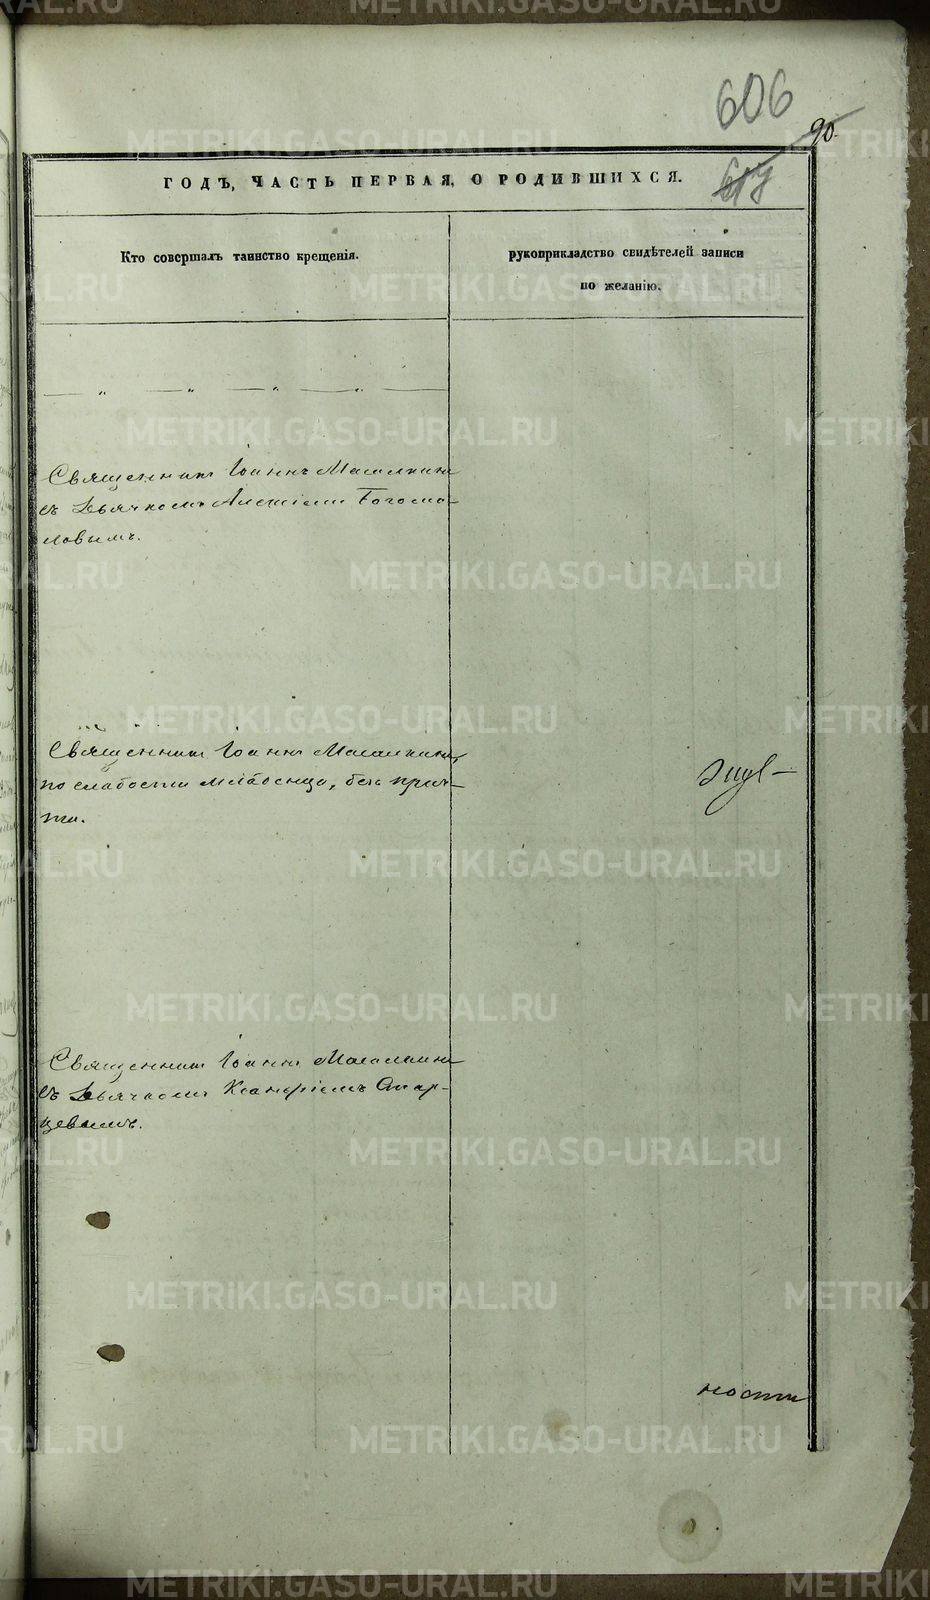 606
90.
617
ГОДЪ, ЧАСТЬ ПЕРВАЯ, О РОДИВШИХСЯ.
Кто совершалъ таинство крещенія.
рукоприкладство свидѣтелей записи
по желанію.
— „ — „ — „ — „ —
Священникъ Іоаннъ
съ Дьячкомъ Алексіемъ Богосло-
ловымъ.
Священникъ Іоаннъ
по слабости младенца, безъ прич-
та.
Священникъ Іоаннъ
съ Дьячкомъ
цевымъ.
ности
METRIKI.GASO-URAL.RU